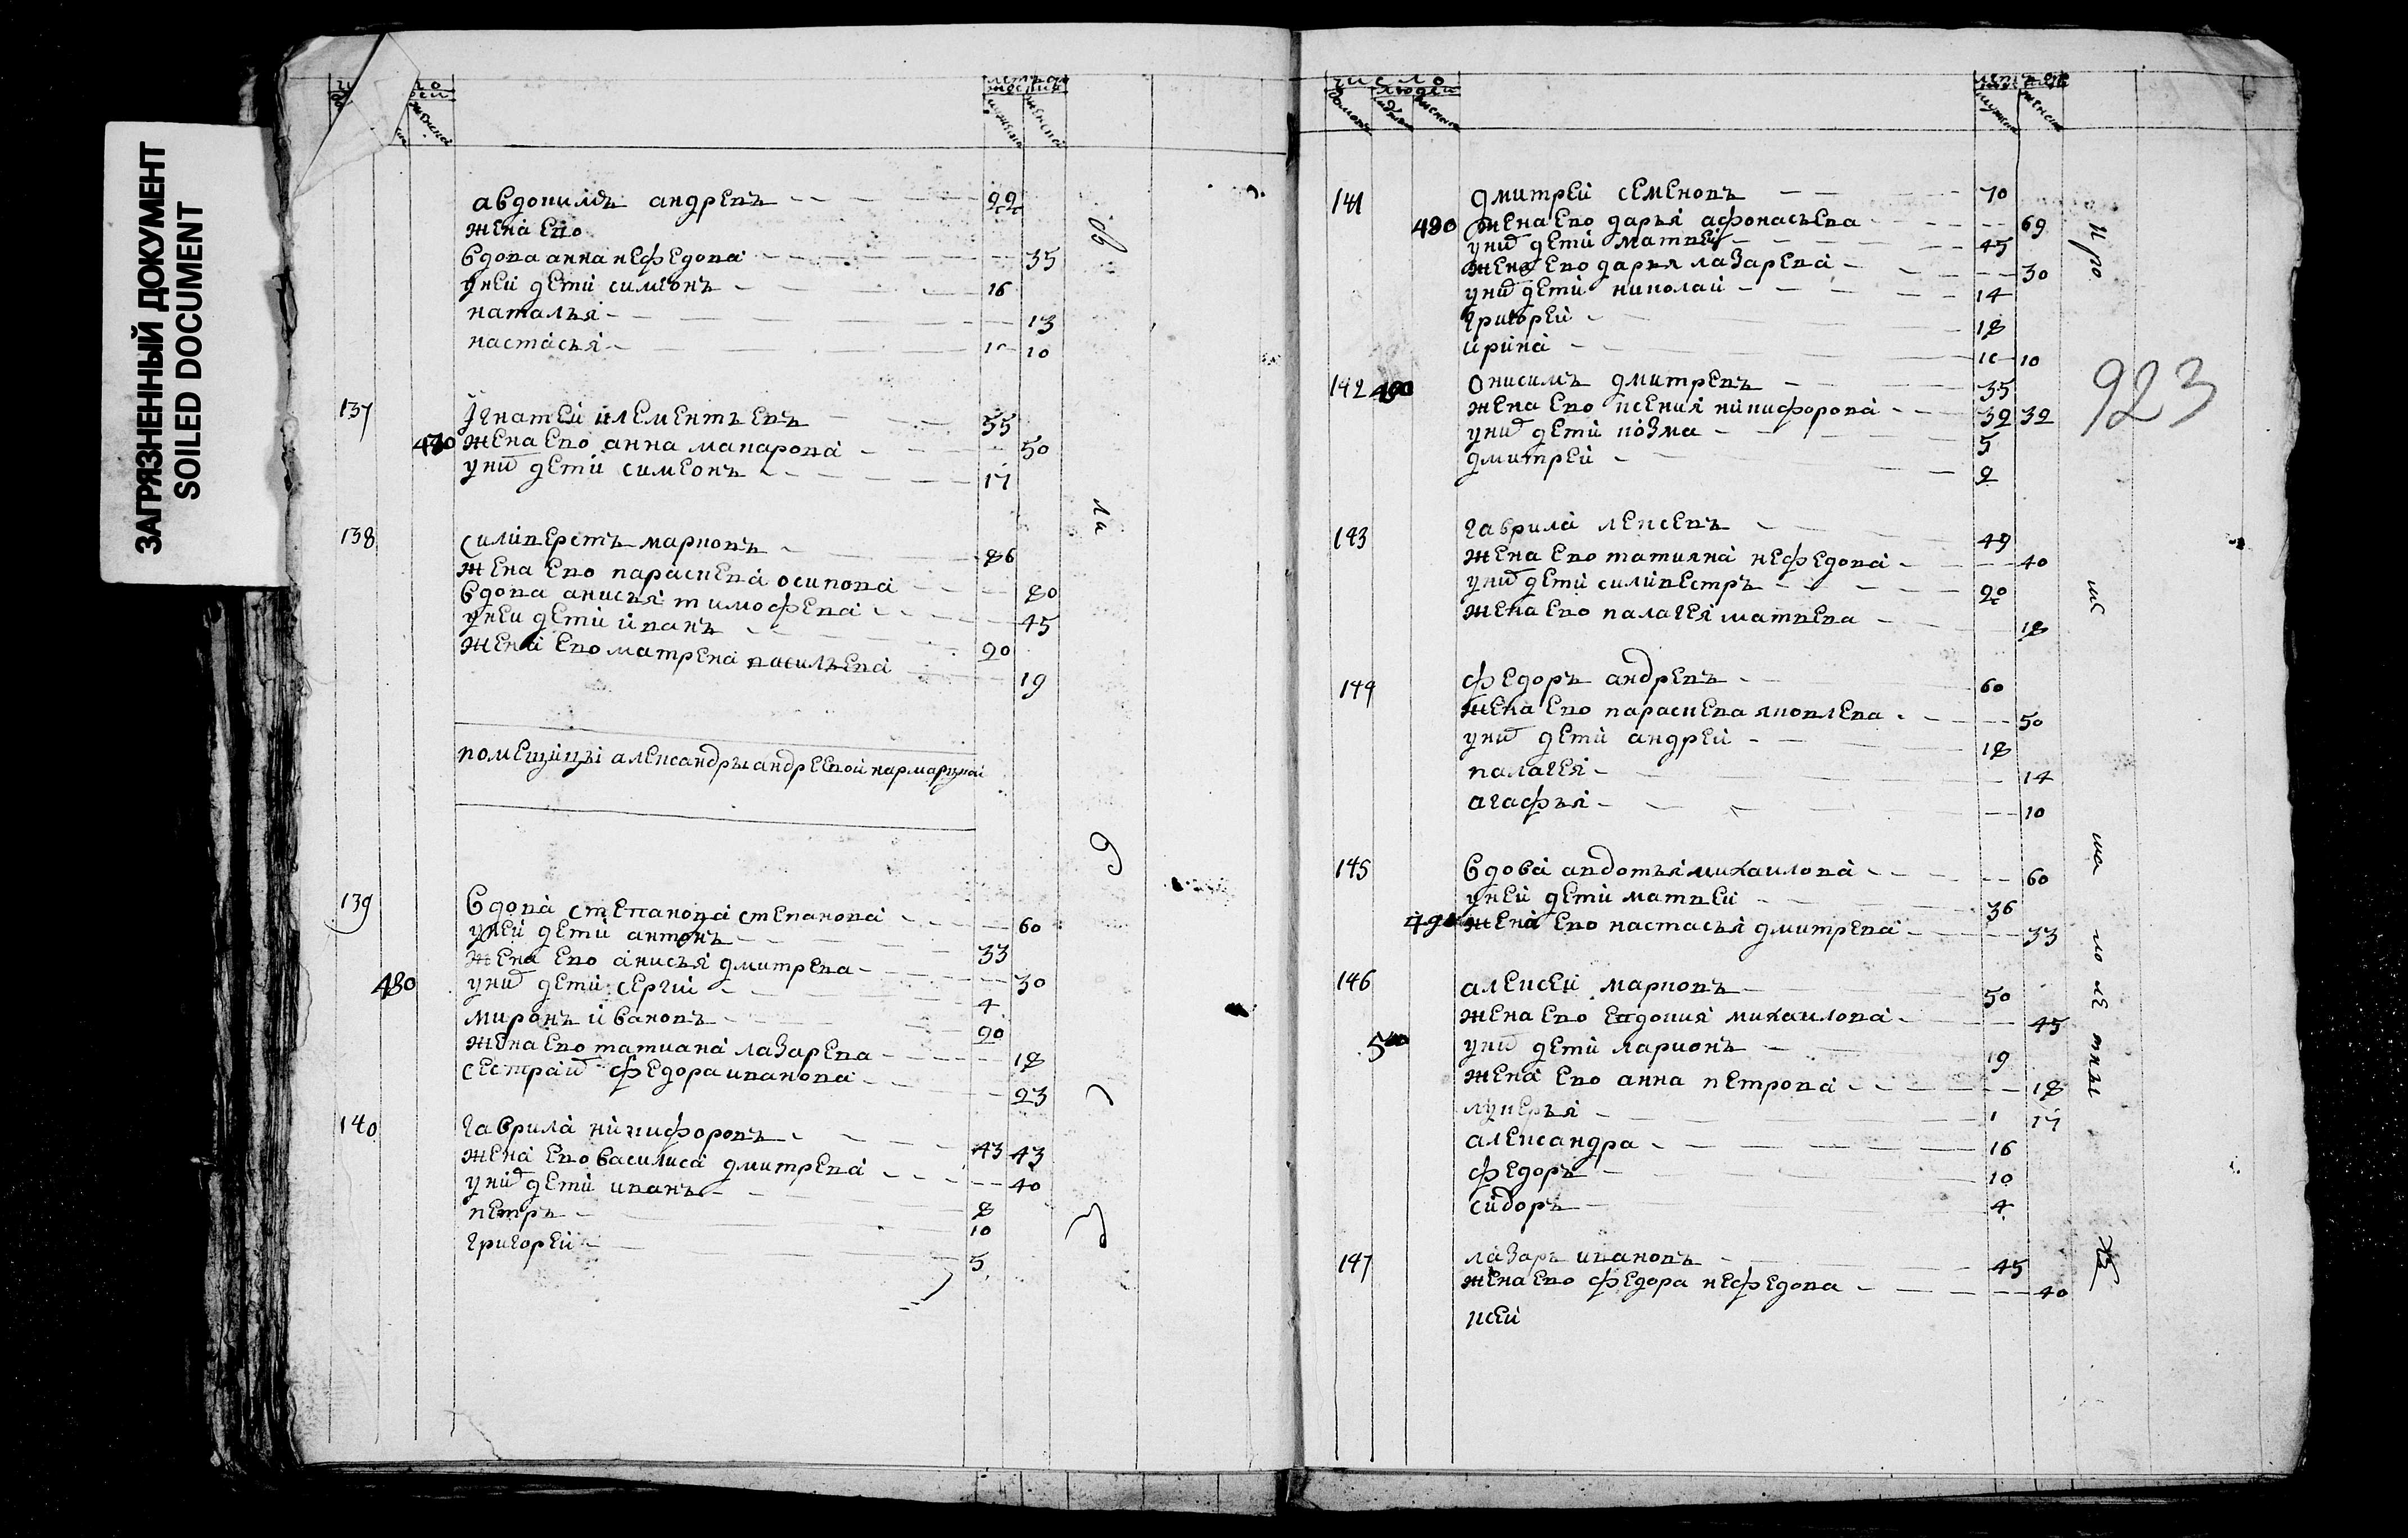 ЗАГРЯЗНЕННЫЙ ДОКУМЕНТ
SOILED DOCUMENT
авдокимъ андревъ 22
жена ево
вдова анна нефедова 35
у ней дети симеонъ 16
наталья 13
настасья 10
137 Игнатей клементьевъ 55
480 жена ево анна макарова 50
у нихъ дети симеонъ 17
138 силиверстъ марковъ 86
жена ево параскева осипова 80
вдова анисья тимофева 45
у неи дети иванъ 20
жена ево матрена васильева 19
помещицы александры андреевой
139 вдова степанова степанова 60
у ней дети антонъ 33
жена ево анисья дмитрева 30
480 у нихъ дети сергий 4
миронъ ивановъ 20
жена ево татиана лазарева 18
сестра их федора иванова 23
140 гаврила никифоровъ 43 43
жена ево василиса дмитрева 40
у нихъ дети иванъ 8
петръ 10
григорей 5
число
людей
141 дмитрей семеновъ 70
490 жена ево дарья афонасьева 69
у нихъ дети матвей 45
жена ево дарья лазарева 30
у нихъ дети николай 14
григорей 18
ирина 10
142 490 онисимъ дмитревъ 35
жена ево ксения никифорова 32 32
у нихъ дети козма 5
дмитрей 2
923
143 гаврила лексевъ 49
жена ево татияна нефедова 40
у нихъ дети силивестръ 20
жена ево палагея матвева 18
144 федоръ андревъ 60
жена ево параскева яковлева 50
у нихъ дети андрей 18
палагея 14
агафья 10
145 вдова авдотья михаилова 60
у ней дети матвей 36
490 жена ево настасья дмитрева 33
146 алексей марковъ 50
жена ево евдокия михаилова 45
500 у нихъ дети ларионъ 19
жена ево анна петрова 18
лукерья 17
александра 16
федоръ 10
сидоръ 4
147 лазарь ивановъ 45
жена ево федора нефедова 40
ксей